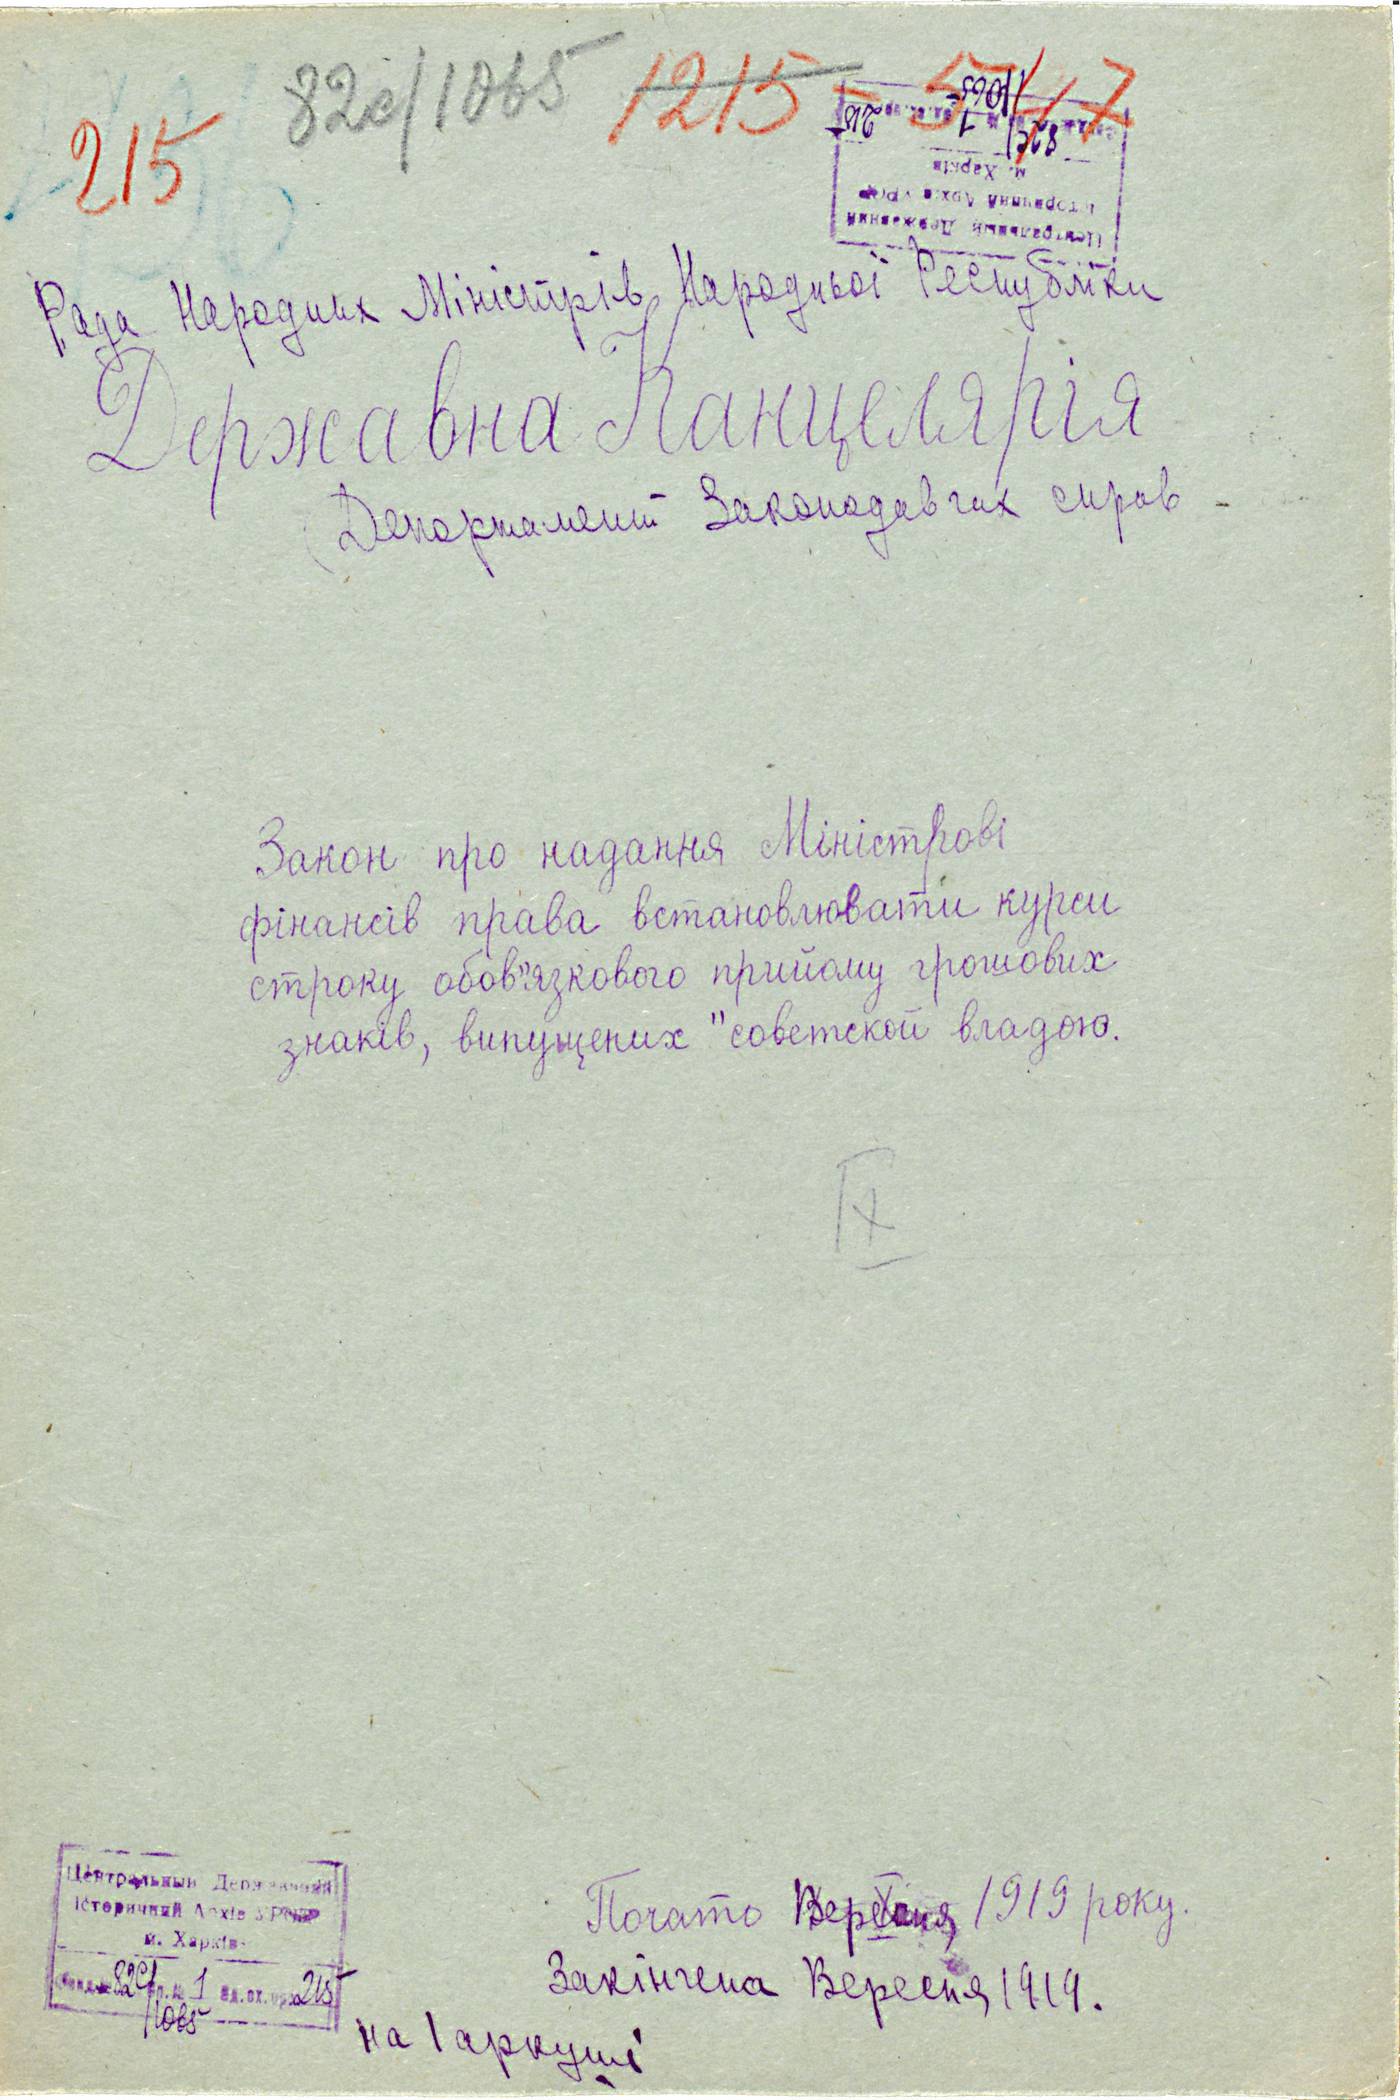 82с/1065 1215 - 5447
215
Центральний Державний
Історичний Архів УРСР
м. Харків
82с/1065 1 215
Рада Народних Міністрів Народньої Республіки
Державна Канцелярія
Департамент Законодавчих справ
Закон про надання Міністрові
фінансів права встановлювати курси
строку обов'язкового прийому грошових
знаків, випущених "советской владою.
IX
Почато Вересня 1919 року.
Закінчена Вересня 1919.
на 1 аркуші
Центральный Державний
Історичний Архів УРСР
м. Харків
Фонд № 82с/1065 оп. № 1 од. зх. 215